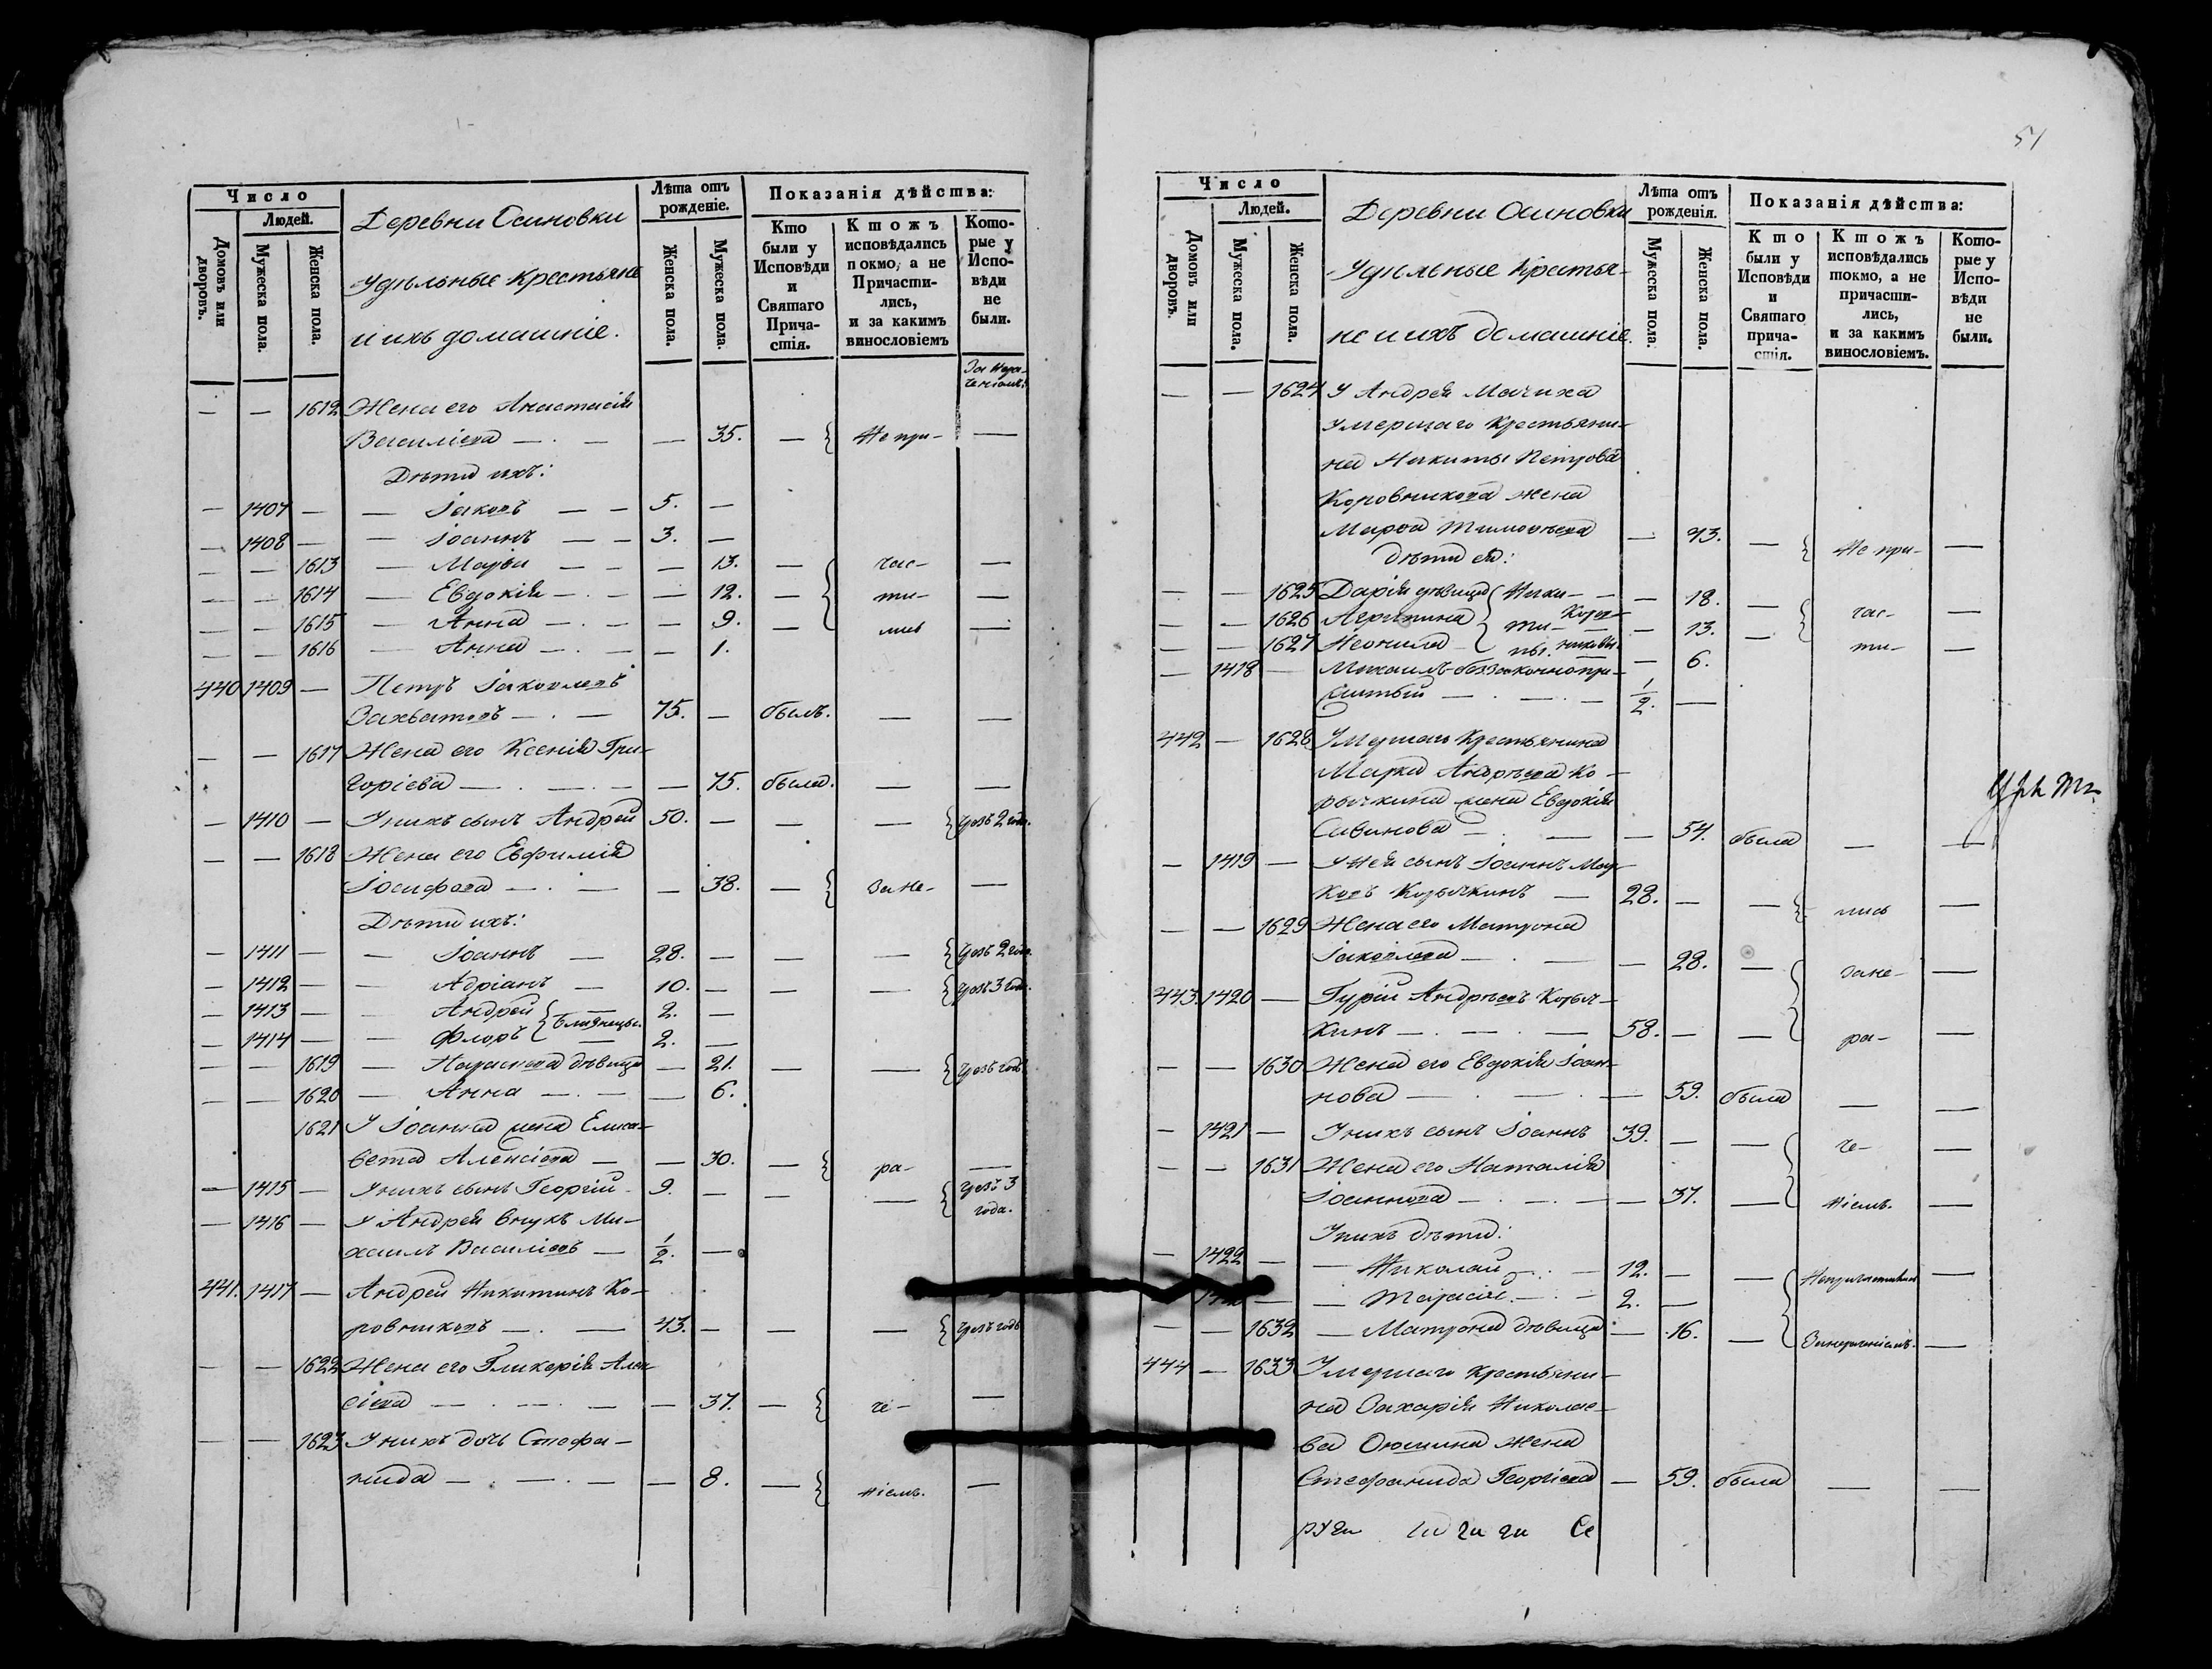 Число
Людей.
Домовъ или дворовъ.
Мужеска пола.
Женска пола.
Деревни Осиновки
Удѣльные Крестьяне
и ихъ домашніе.
Лѣта отъ рожденіе.
Женска пола.
Мужеска пола.
Показанія дѣйства:
Кто были у Исповѣди и Святаго Прича- стія.
Ктожъ исповѣдались покмо, а не Причасти- лись, и за какимъ винословіемъ
Кото- рые у Испо- вѣди не были.
— — 1612 Жена его Анастасія
Василіева — . — — 35. — Не при- —
Дѣти ихъ:
— 1407 — — Іаковъ — — 5. —
— 1408 — — Іоаннъ — — 3. —
— — 1613 — Марья — — — 13. — час- —
— — 1614 — Евдокія — . — — 12. — ти- —
— — 1615 — Анна — . — — 9. — лись —
— — 1616 — Анна — . — — 1.
440 1409 — Петръ Іаковлевъ
Захватовъ — . — 75. — былъ. — —
— — 1617 Жена его Ксенія Гри-
горіева — . — . — — 75. была. — —
— 1410 — У нихъ сынъ Андрей 50. — — — чрезъ 2 года.
— — 1618 Жена его Евфимія
Іосифова — . — — 38. — за не- —
Дѣти ихъ:
— 1411 — — Іоаннъ — 28. — — — чрезъ 2 года.
— 1412 — — Адріанъ — 10. — — — чрезъ 3 года.
— 1413 — — Андрей — 2. —
близнецы.
— 1414 — — Флоръ — 2. —
— — 1619 — Параскева дѣвица — 21. — — чрезъ годъ
— — 1620 — Анна — . — — 6.
1621 У Іоанна жена Елиса-
вета Алексіева — — 30. — ра- —
— 1415 — У нихъ сынъ Георгій 9. — — — чрезъ 3 года.
— 1416 — У Андрея внукъ Ми-
хаилъ Василіевъ — 1/2. —
441. 1417 — Андрей Никитинъ Ко-
ровниковъ — . — 43. — — — чрезъ годъ
— — 1622 Жена его Гликерія Алек
сіева — . — . — — 37. — че- —
— — 1623 У нихъ дочь Стефа-
нида — . — . — — 8. — ніемъ. —
51
Число
Людей.
Домовъ или дворовъ.
Мужеска пола.
Женска пола.
Деревни Осиновки
Удѣльные Крестья-
не и ихъ домашніе.
Лѣта отъ рожденія.
Мужеска пола.
Женска пола.
Показанія дѣйства:
Кто были у Исповѣди и Святаго прича- стія.
Ктожъ исповѣдались токмо, а не причасти- лись, и за какимъ винословіемъ.
Кото- рые у Испо- вѣди не были.
— — 1624 У Андрея Мачиха
умершаго крестьяни-
на Никиты Петрова
Коровникова жена
Марѳа Тимоѳѣева — 43. — Не при- —
дѣти ея:
— — 1625 Дарія дѣвица Ники- — — 18. — час- —
— — 1626 Агрипина ти- Коров- — 13. — ти- —
— — 1627 Неонила ны. никовы. — 6.
— 1418 — Михаилъ беззаконнопри-
житый — . — . — 1/2. —
442 — 1628 Умершаго Крестьянина
Марка Андрѣева Ко-
рычкина жена Евдокія
Савинова — . — — 54. была — —
— 1419 — У нея сынъ Іоаннъ Мар
ковъ Корычкинъ — 28. — — лись —
— — 1629 Жена его Матрона
Іаковлева — . — — 28. — за не- —
443. 1420 — Гурій Андрѣевъ Корыч-
кинъ — . — . — 58. — — ра- —
— — 1630 Жена его Евдокія Іоан-
нова — . — . — 59. была — —
— 1421 — У нихъ сынъ Іоаннъ 39. — — че- —
— — 1631 Жена его Наталія
Іоаннова — . — . — — 37. — ніемъ. —
У нихъ дѣти:
— 1422 — — Николай — . — 12. — —
— — Тарасій. — . — 2. —
— — 1632 — Матрона дѣвица — 16. — За нераченіемъ. —
444 — 1633 Умершаго крестьяни-
на Захарія Николае-
ва жена
Стефанида Георгіева — 59. была — —